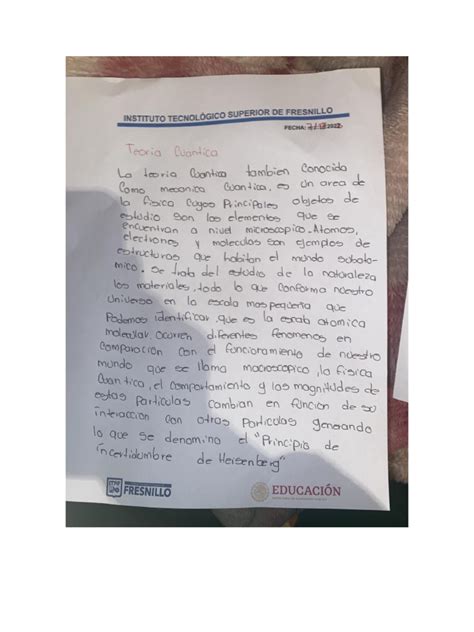 INSTITUTO TECNOLÓGICO SUPERIOR DE FRESNILLO
FECHA: 2022
Teoria Cuantica
La teoria Cuantica tambien Conocida
Como mecanica Cuantica, es un area de
la fisica Cuyos Principales objetos de
estudio son los elementos que se
encuentran a nivel microscopico. Atomos,
electrones y moleculas son ejemplos de
estructuras que habitan el mundo subato-
mico. Se trata del estudio de la naturaleza
los materiales, todo lo que conforma nuestro
Universo en la escala mas pequeña que
Podemos identificar, que es la escala atomica
molecular. ocurren diferentes fenomenos en
Comparación con el funcionamiento de nuestro
mundo que se llama macroscopico, la fisica
Cuantica, el comportamiento y las magnitudes de
estas particulas cambian en funcion de su
interacción con otras particulas generando
lo que se denomino el "Principio de
incertidumbre de Heisenberg"
FRESNILLO
EDUCACIÓN